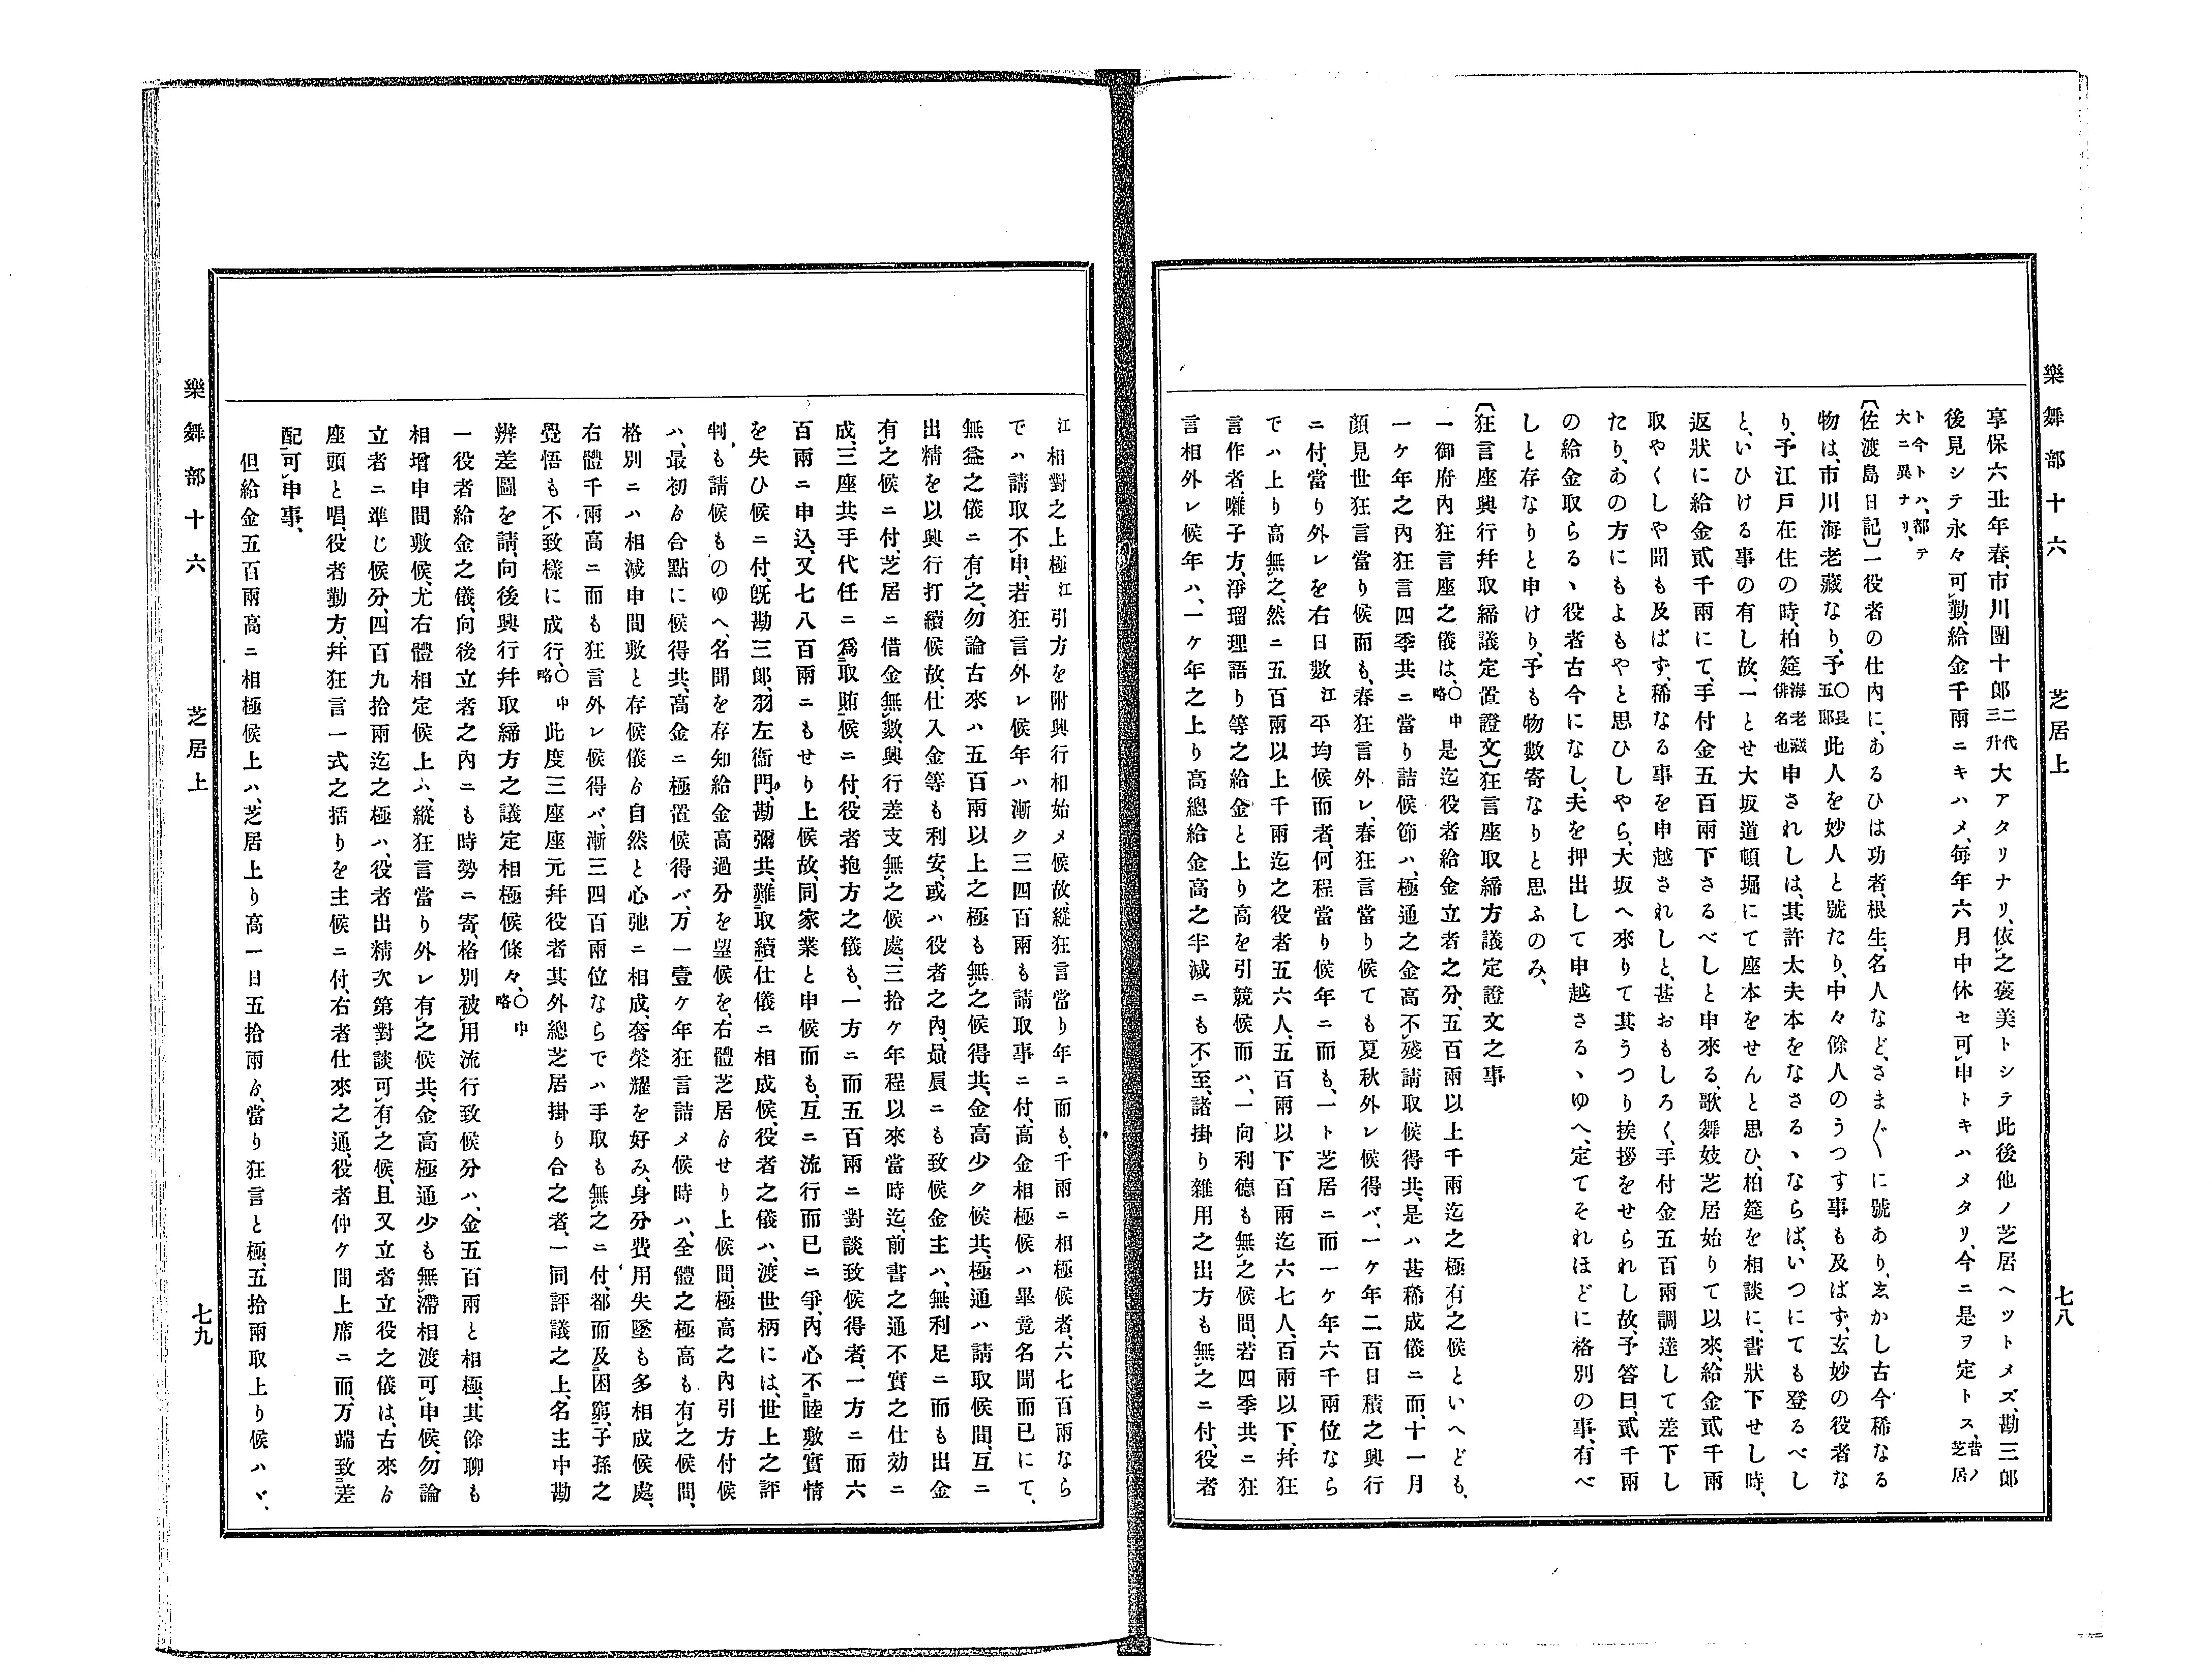 樂舞部十六　芝居上　七八
享保六丑年春、市川團十郎二代三升大アタリナリ、依レ之褒美トシテ此後他ノ芝居ヘツトメズ、勘三郎
後見シテ永々可レ勤、給金千兩ニキハメ、毎年六月中休セ可レ申トキハメタリ、今ニ是ヲ定トス、昔ノ芝居
ト今トハ、都テ大ニ異ナリ、
〔佐渡島日記〕一役者の仕内に、あるひは功者、根生、名人など、さま〴〵に號あり、志かし古今稀なる
物は、市川海老藏なり、予〇長五郎此人を妙人と號たり、中々餘人のうつす事も及ばず、玄妙の役者な
り、予江戸在住の時、柏筵海老藏俳名也申されしは、其許太夫本をなさるゝならば、いつにても登るべし
と、いひける事の有し故、一とせ大坂道頓堀にて座本をせんと思ひ、柏筵を相談に、書狀下せし時、
返狀に給金貳千兩にて、手付金五百兩下さるべしと申來る、歌舞妓芝居始りて以來、給金貳千兩
取やくしや聞も及ばず、稀なる事を申越されしと、甚おもしろく、手付金五百兩調達して差下し
たり、あの方にもよもやと思ひしやら、大坂へ來りて其うつり挨拶をせられし故、予答曰、貳千兩
の給金取らるゝ役者古今になし、夫を押出して申越さるゝゆへ、定てそれほどに格別の事、有べ
しと存なりと申けり、予も物數寄なりと思ふのみ、
〔狂言座興行幷取締議定置證文〕狂言座取締方議定證文之事
一御府内狂言座之儀は、〇中略是迄役者給金立者之分、五百兩以上千兩迄之極有レ之候といへども、
一ケ年之内狂言四季共ニ當り詰候節ハ、極通之金高不レ殘請取候得共、是ハ甚稀成儀ニ而、十一月
顔見世狂言當り候而も、春狂言外レ、春狂言當り候ても夏秋外レ候得バ、一ケ年二百日積之興行
ニ付、當り外レを右日數江平均候而者、何程當り候年ニ而も、一ト芝居ニ而一ケ年六千兩位なら
でハ上り高無レ之、然ニ五百兩以上千兩迄之役者五六人、五百兩以下百兩迄六七人、百兩以下、幷狂
言作者、囃子方、淨瑠理語り等之給金と上り高を引競候而ハ、一向利德も無レ之候間、若四季共ニ狂
言相外レ候年ハ、一ケ年之上り高總給金高之半減ニも不レ至、諸掛り雜用之出方も無レ之ニ付、役者
江相對之上極江引方を附興行相始メ候故縱狂言當り年ニ而も、千兩ニ相極候者、六七百兩なら
でハ請取不レ申、若狂言外レ候年ハ漸ク三四百兩も請取事ニ付、高金相極候ハ畢竟名聞而已にて、
無益之儀ニ有レ之、勿論古來ハ五百兩以上之極も無レ之候得共、金高少ク候共、極通ハ請取候間、互ニ
出精を以興行打續候故、仕入金等も利安、或ハ役者之内、最屓ニも致候金主ハ、無利足ニ而も出金
有レ之候ニ付、芝居ニ借金無レ數、興行差支無レ之候處、三拾ケ年程以來當時迄、前書之通不實之仕効ニ
成、三座共手代任ニ爲二取賄一候ニ付、役者抱方之儀も、一方ニ而五百兩ニ對談致候得者、一方ニ而六
百兩ニ申込、又七八百兩ニもせり上候故、同家業と申候而も、互ニ流行而已ニ爭、内心不レ睦敷實情
を失ひ候ニ付、旣勘三郎、羽左衞門、勘彌共、難二取續一仕儀ニ相成候、役者之儀ハ、渡世柄には、世上之評
判も請候ものゆへ、名聞を存知給金高過分を望候を、右體芝居ゟせり上候間、極高之内引方付候
ハ、最初ゟ合點に候得共、高金ニ極置候得バ、万一壹ケ年狂言詰メ候時ハ、全體之極高も有レ之候間、
格別ニハ相減申間敷と存候儀ゟ自然と心弛ニ相成、奢榮耀を好み、身分費用失墜も多相成候處、
右體千兩高ニ而も狂言外レ候得バ、漸三四百兩位ならでハ手取も無レ之ニ付、都而及二困窮一、子孫之
覺悟も不レ致樣に成行、〇中略此度三座座元幷役者其外總芝居掛り合之者、一同評議之上、名主中勘
辨差圖を請、向後興行幷取締方之議定相極候條々、〇中略
一役者給金之儀、向後立者之内ニも時勢ニ寄、格別被レ用流行致候分ハ、金五百兩と相極、其餘聊も
相增申間敷候、尤右體相定候上ハ、縱狂言當り外レ有レ之候共、金高極通少も無レ滯相渡可レ申候、勿論
立者ニ準じ候分、四百九拾兩迄之極ハ、役者出精次第對談可レ有レ之候、且又立者立役之儀は、古來ゟ
座頭と唱、役者勤方、幷狂言一式之括りを主候ニ付、右者仕來之通、役者仲ケ間上席ニ而、万端致二差
配一可レ申事、
但給金五百兩高ニ相極候上ハ、芝居上り高一日五拾兩ゟ、當り狂言と極、五拾兩取上り候ハヾ、
樂舞部十六　芝居上　七九